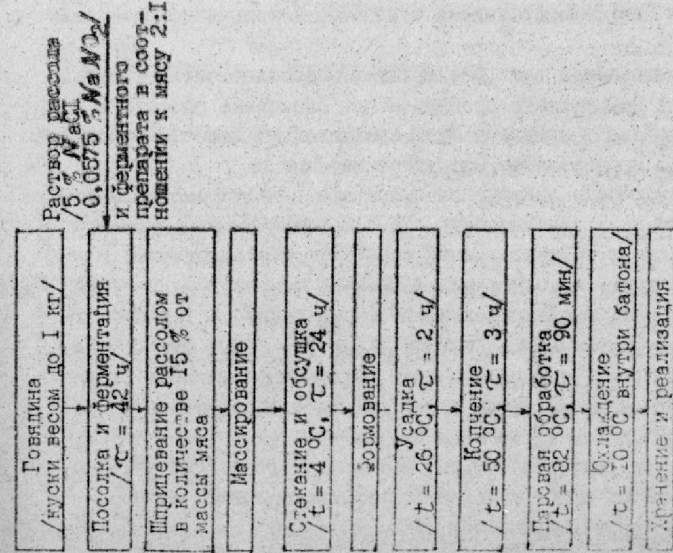 Говядина
/куски весом до 1 кг/
Посолка и ферментация
/τ = 42 ч/
Раствор рассола
/5 % NaCl
0,0575 % NaNO2/
и ферментного
препарата в соот-
ношении к мясу 2:1
Шприцевание рассолом
в количестве 15 % от
массы мяса
Массирование
Стекание и обсушка
/t = 4 °C, τ = 24 ч/
Формование
Усадка
/t = 26 °C, τ = 2 ч/
Копчение
/t = 50 °C, τ = 3 ч/
Паровая обработка
/t = 82 °C, τ = 90 мин/
Охлаждение
/t = 10 °C внутри батона/
Хранение и реализация